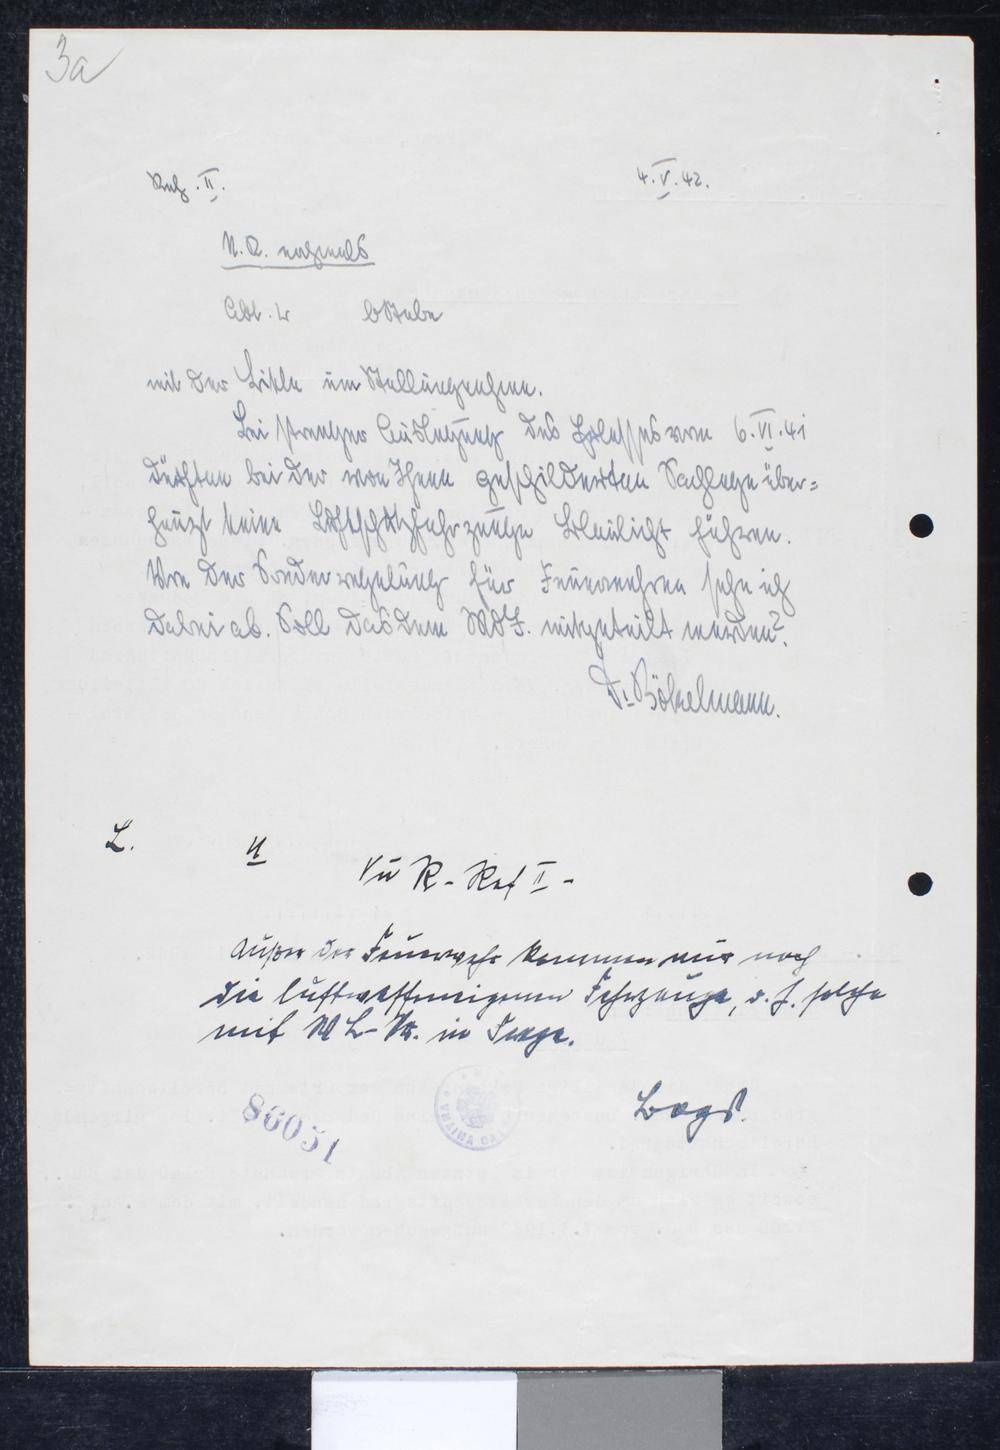 3a
Ruf. II. 4. V. 42.
U. R. nochmals
Abt. L
mit der Bitte um Stellungnahme.
Bei strenger Auslegung des Erlasses vom 6. VI. 41
dürften bei der von Ihnen geschilderten Sachlage über-
haupt keine Luftschutzfahrzeuge Blaulicht führen.
Von der Sonderregelung für Feuerwehren sehe ich
dabei ab. Soll das dem RdF. mitgeteilt werden?
Dr. Bökelmann.
L.
U
An R - Ref II -
Außer der Feuerwehr kommen nur noch
die luftwaffeneigenen Fahrzeuge, d. h. solche
mit WL - Nr. in Frage.
86051